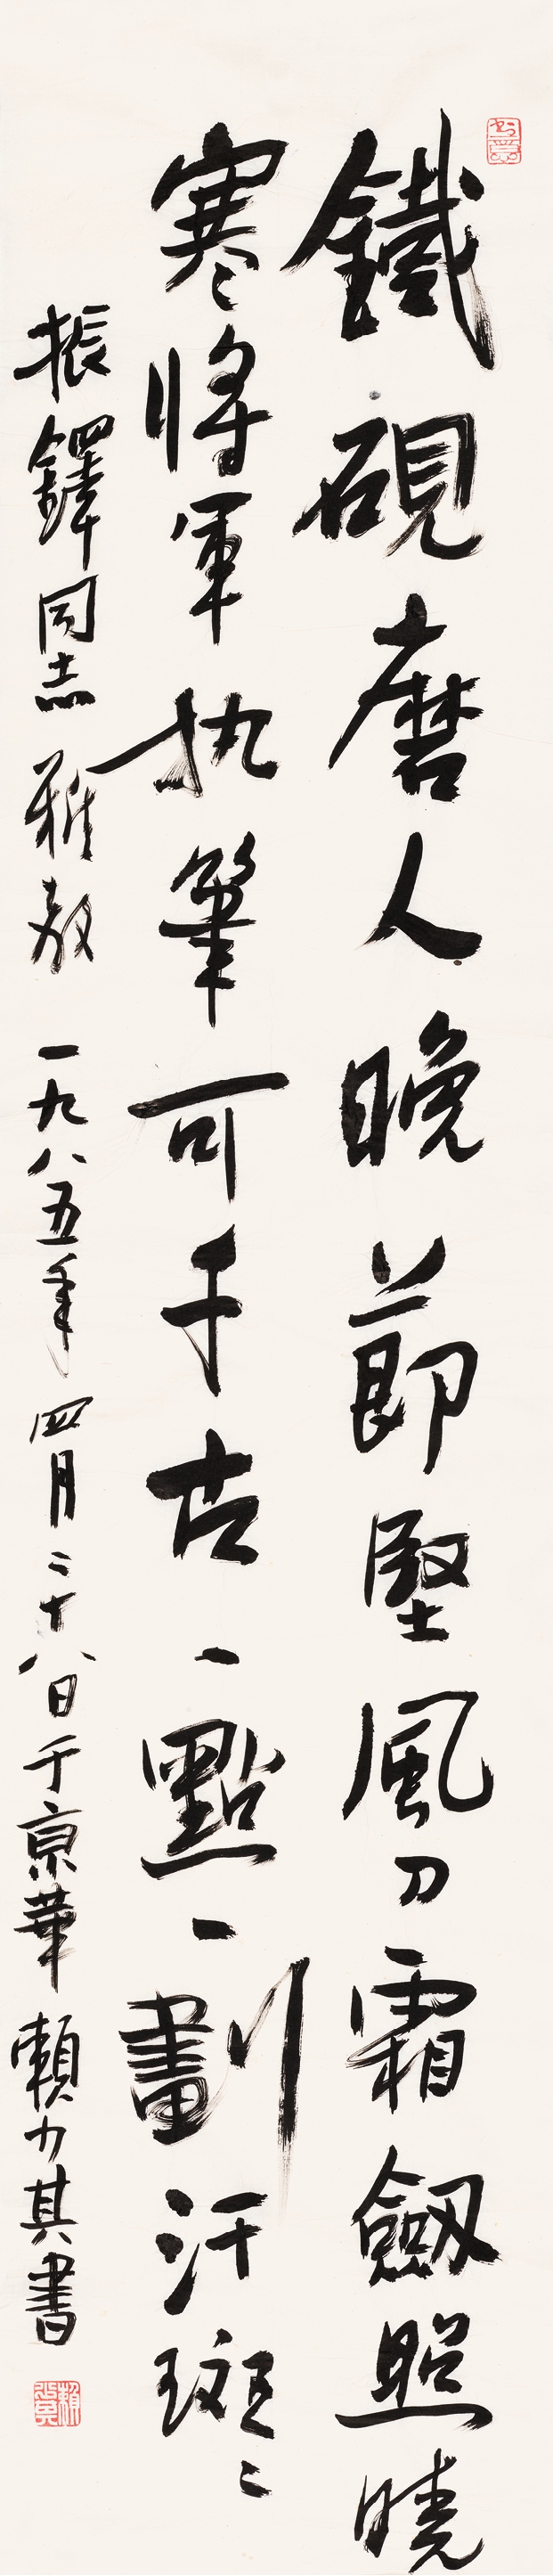 鐵硯磨人晚節堅風刀霜劔照曉
寒將軍执筆可千古一點一劃汗斑〻
振鐸同志雅教 一九八五年四月二十八日于京華 賴少其書